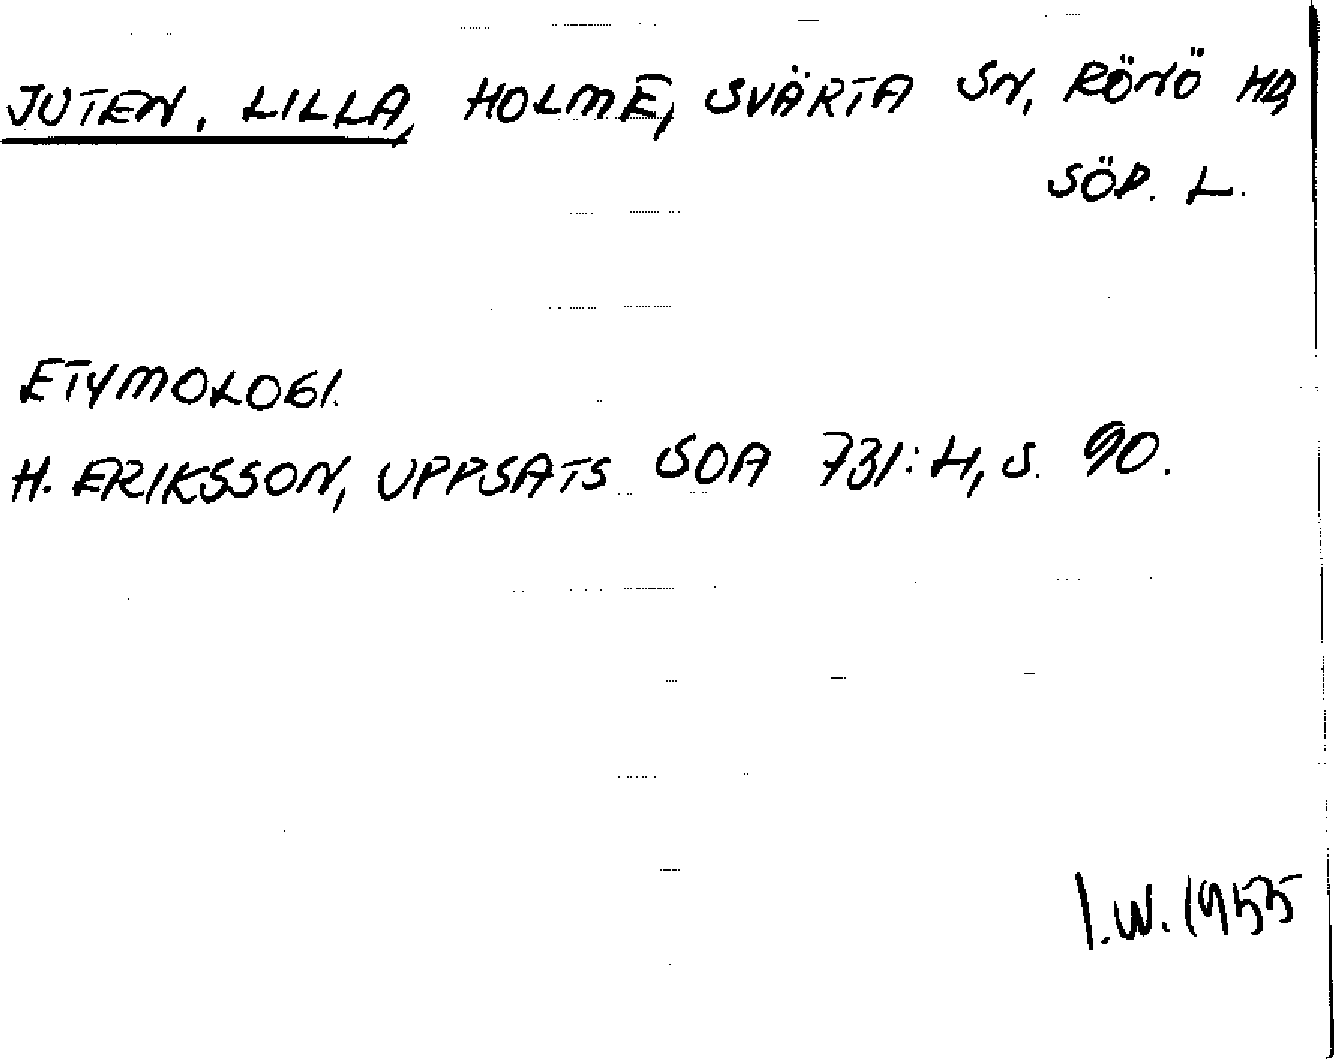 JUTEN, LILLA, HOLME, SVÄRTA SN, RÖNÖ HD,
SÖD. L.
ETYMOLOGI.
H. ERIKSSON, UPPSATS SOA 731:4, S. 90.
I.W. 1955